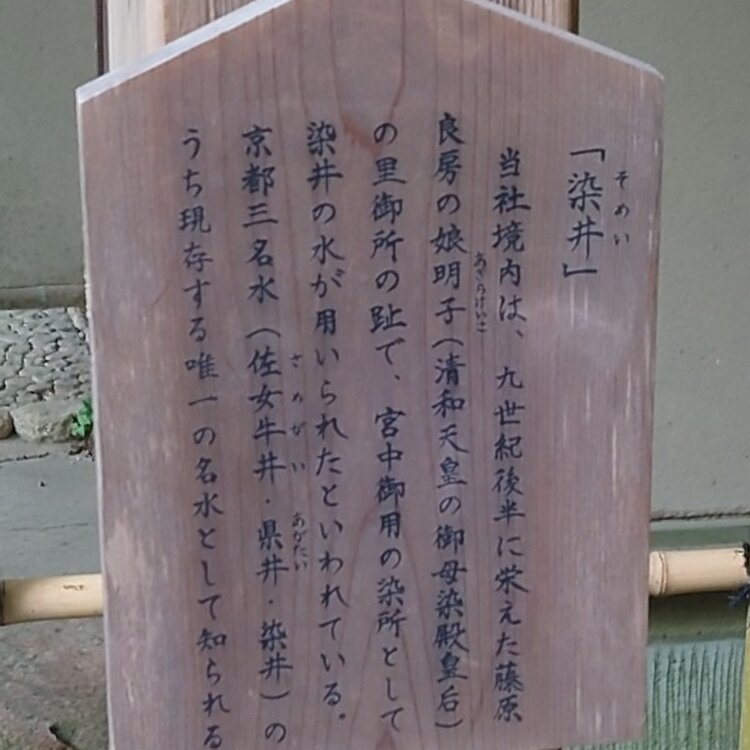 「染井」
そめい
当社境内は、九世紀後半に栄えた藤原
良房の娘明子(清和天皇の御母染殿皇后)
あきらけいこ
の里御所の趾で、宮中御用の染所として
染井の水が用いられたといわれている。
京都三名水(佐女牛井・県井・染井)の
さめがい
あがたい
うち現存する唯一の名水として知られる